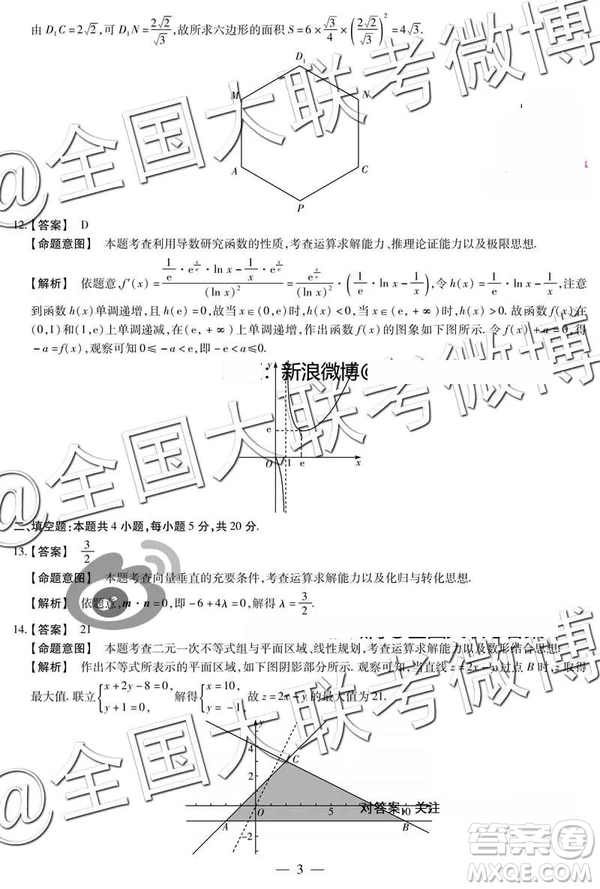 由 D₁C = 2√2, 可 D₁N = 2√2/√3, 故所求六边形的面积 S = 6 × √3/4 × (2√2/√3)² = 4√3.
D₁
M N
A C
P
12. 【答案】 D
【命题意图】 本题考查利用导数研究函数的性质, 考查运算求解能力、推理论证能力以及极限思想.
【解析】 依题意, f′(x) = (1/e · e^(x/e) · ln x − 1/x · e^(x/e))/(ln x)² = e^(x/e)/(ln x)² · (1/e · ln x − 1/x), 令 h(x) = 1/e · ln x − 1/x, 注意
到函数 h(x) 单调递增, 且 h(e) = 0, 故当 x∈(0,e) 时, h(x) < 0, 当 x∈(e, +∞) 时, h(x) > 0. 故函数 f(x) 在
(0,1) 和 (1,e) 上单调递减, 在 (e, +∞) 上单调递增, 作出函数 f(x) 的图象如下图所示. 令 f(x) + a = 0, 得
−a = f(x), 观察可知 0 ≤ −a < e, 即 −e < a ≤ 0.
新浪微博@
y
e
O 1 e x
二、填空题: 本题共 4 小题, 每小题 5 分, 共 20 分.
13. 【答案】 3/2
【命题意图】 本题考查向量垂直的充要条件, 考查运算求解能力以及化归与转化思想.
【解析】 依题意, m · n = 0, 即 −6 + 4λ = 0, 解得 λ = 3/2.
14. 【答案】 21
【命题意图】 本题考查二元一次不等式组与平面区域、线性规划, 考查运算求解能力以及数形结合思想.
【解析】 作出不等式所表示的平面区域, 如下图阴影部分所示. 观察可知, 当直线 z = 2x − y 过点 B 时, z 取得
最大值. 联立 {x + 2y − 8 = 0, y + 1 = 0, 解得 {x = 10, y = −1, 故 z = 2x − y 的最大值为 21.
4
C
2
O 5 10
A B
−2
对答案, 关注
— 3 —
@全国大联考微博
@全国大联考微博
@全国大联考微博
答案圈
MXQE.COM